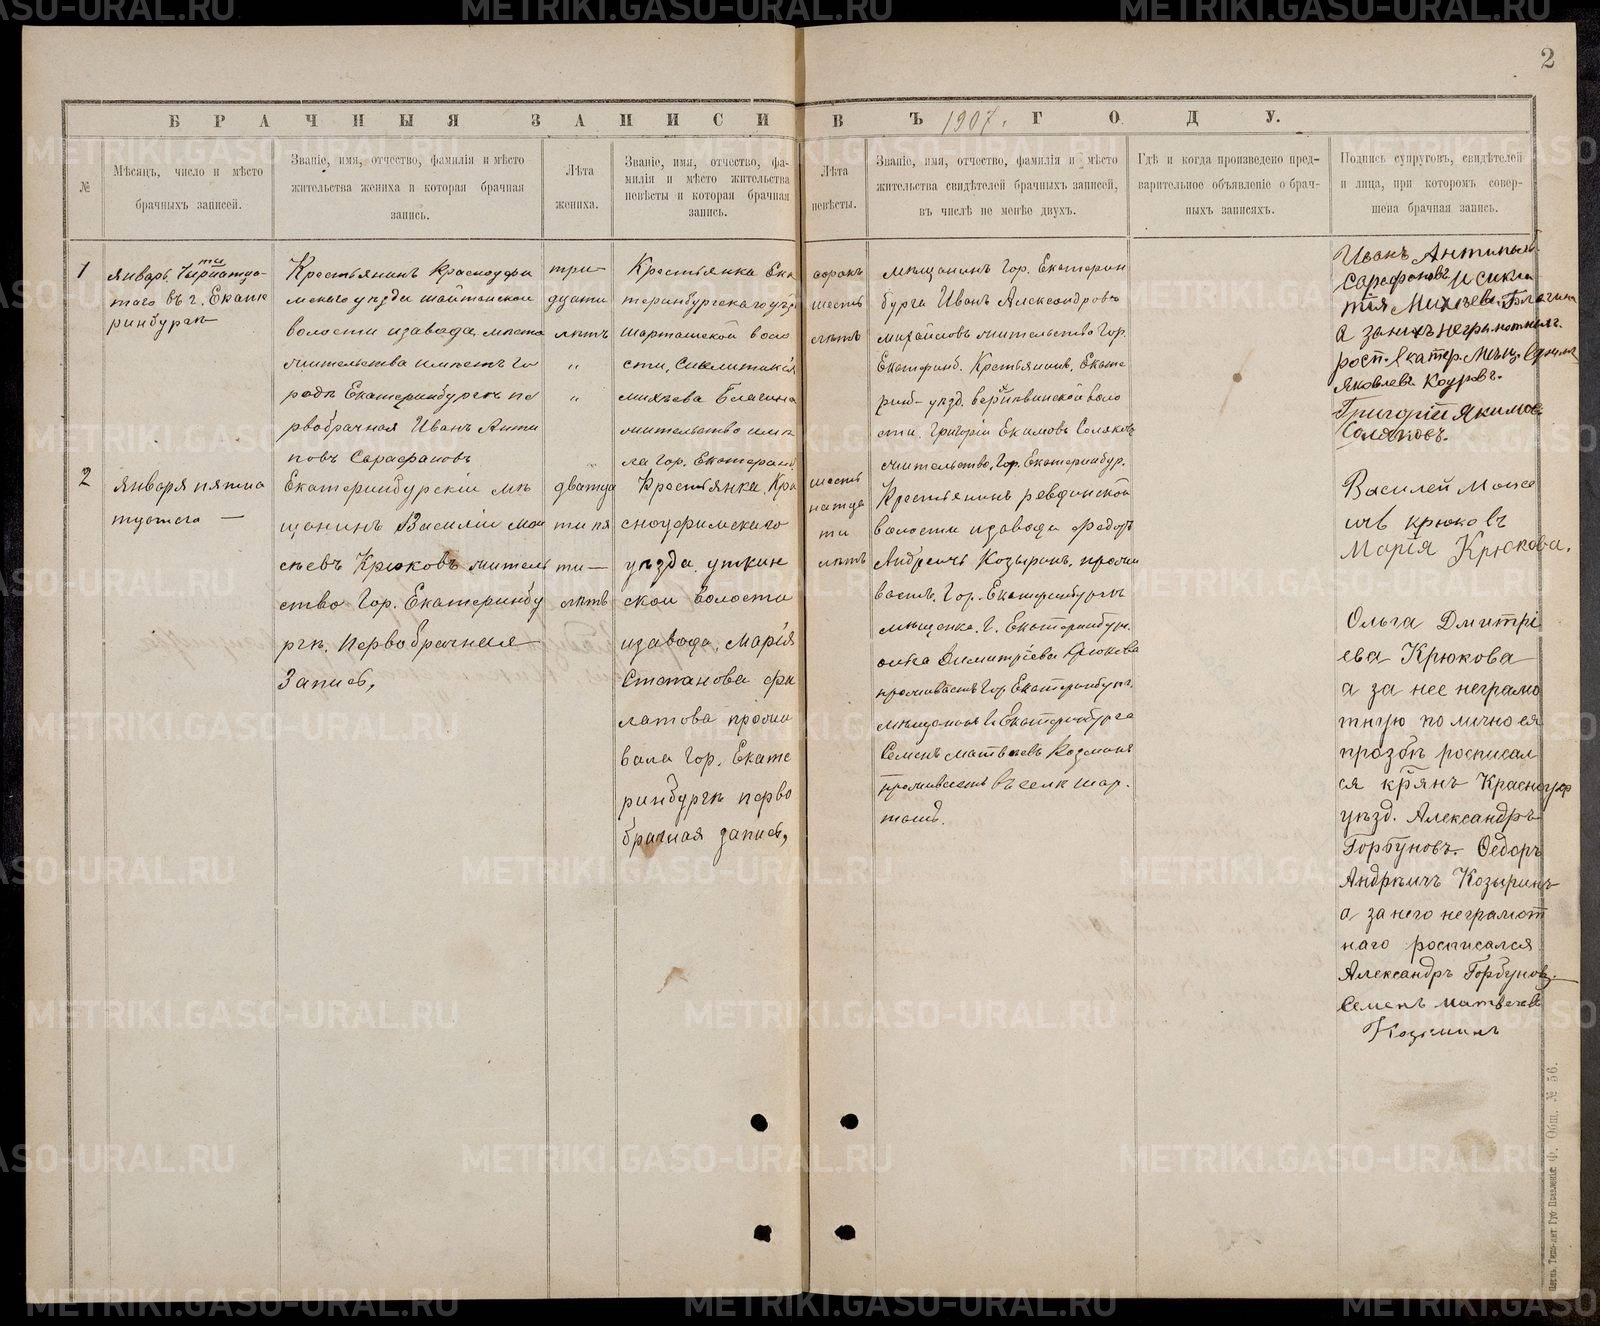 2
БРАЧНЫЯ ЗАПИСИ ВЪ 1907. ГОДУ.
№
Мѣсяцъ, число и мѣсто
брачныхъ записей.
Званіе, имя, отчество, фамилія и мѣсто
жительства жениха и которая брачная
запись.
Лѣта
жениха.
Званіе, имя, отчество, фа-
милія и мѣсто жительства
невѣсты и которая брачная
запись.
Лѣта
невѣсты.
Званіе, имя, отчество, фамилія и мѣсто
жительства свидѣтелей брачныхъ записей,
въ числѣ не менѣе двухъ.
Гдѣ и когда произведено пред-
варительное объявленіе о брач-
ныхъ записяхъ.
Подпись супруговъ, свидѣтелей
и лица, при которомъ совер-
шена брачная запись.
1
январь
таго въ г. Екате
ринбургѣ
Крестьянинъ Красноуфи
мскаго уѣзда шайтанской
волости изавода, место
жительства имѣетъ Го
родѣ Екатеринбургѣ пе
рвобрачная Иванъ Анти
повъ Сарафановъ
три-
дцати
лѣтъ
"
"
Крестьянка Ека
теринбургскаго уѣз
шарташской воло
сти, Сиклитикія
михѣева Благина
жительство имѣ
ла Гор. Екатеринб
сорокъ
шесть
лѣтъ
мѣщанинъ Гор. Екатерин
бурга Иванъ Александровъ
михайловъ жительство Гор.
Екатеринб. Крестьянинъ, Екате
ринб- уѣзд. волo
сти, Григорій Екимовъ Соляковъ
жительство, Гор. Екатеринбур.
Иванъ Антиповъ
Сарафановъ и сикли
тія Михѣева Благина
а за нихъ неграмотныхъ
росп. Екатер. Мѣщ.
Яковлевъ
Григорій Якимов
Соляковъ.
2
Января пятна
тцатаго —
Екатеринбурскій мѣ
щанинъ Василій Мои
сѣевъ Крюковъ житель
ство Гор. Екатеринбу
ргѣ. Первобрачная
Запись,
дватца
ти пя
ти —
лѣтъ
Крестьянка, Кра
сноуфимскаго
уѣзда, уткин
ской волости
изавода, Марія
Степанова Фи
латова прожи
вала Гор. Екате
ринбургѣ перво
брачная запись,
шесть
натца
ти
лѣтъ
Крестьянинъ ревдинской
волости изавода Федоръ
Андреичъ Козыринъ, прожи
ваетъ. Гор. Екатеринбургѣ
мѣщенка. Г. Екатеринбур.
олга Димитріева Крюкова
проживаетъ Гор Екатеринбург.
мѣщанинъ Г. Екатеринбурга
Семенъ матвѣевъ Козминъ
проживаетъ въ селѣ шар.
ташѣ.
Василей Моисе
ичь крюковъ
Марія Крюкова.
Ольга Дмитрі
ева Крюкова
а за нее неграмо
тную по личное ея
прозбѣ росписал
ся кр̃янъ Красноуф
уѣзд. Александръ
Горбуновъ. Федоръ
Андрѣичъ Козыринъ
а за него неграмот
наго росписался
Александръ Горбуновъ.
Семенъ матвеевъ
Козьминъ
Пермь. Типо-лит. Губ. Правленія. Ф. Общ. № 56.
METRIKI.GASO-URAL.RU